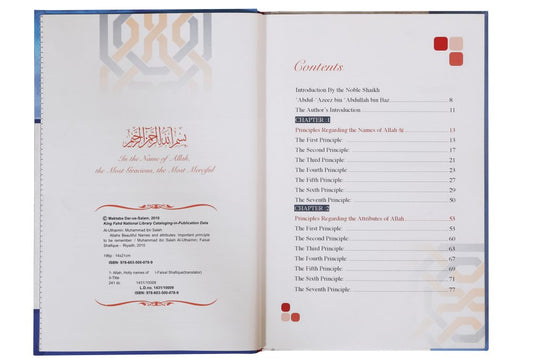 بسم الله الرحمن الرحيم
In the Name of Allah,
the Most Gracious, the Most Merciful
© Maktaba Dar-us-Salam, 2010
King Fahd National Library Cataloging-in-Publication Data
Al-Uthaimin, Muhammad bin Saleh
Allah's Beautiful Names and attributes: important principle
to be remember. / Muhammad bin Saleh Al-Uthaimin; Faisal
Shafique - Riyadh, 2010
196p 14x21cm
ISBN: 978-603-500-078-9
1- Allah, Holy names of 1-Faisal Shafique(translation)
II-Title
241 dc 1431/10009
L.D.no. 1431/10009
ISBN: 978-603-500-078-9
Contents
Introduction By the Noble Shaikh
'Abdul-'Azeez bin 'Abdullah bin Baz 8
The Author's Introduction 11
CHAPTER :1
Principles Regarding the Names of Allah ﷻ 13
The First Principle 13
The Second Principle 17
The Third Principle 21
The Fourth Principle 23
The Fifth Principle 27
The Sixth Principle 29
The Seventh Principle 50
CHAPTER :2
Principles Regarding the Attributes of Allah 53
The First Principle 53
The Second Principle 60
The Third Principle 63
The Fourth Principle 67
The Fifth Principle 69
The Sixth Principle 71
The Seventh Principle 77